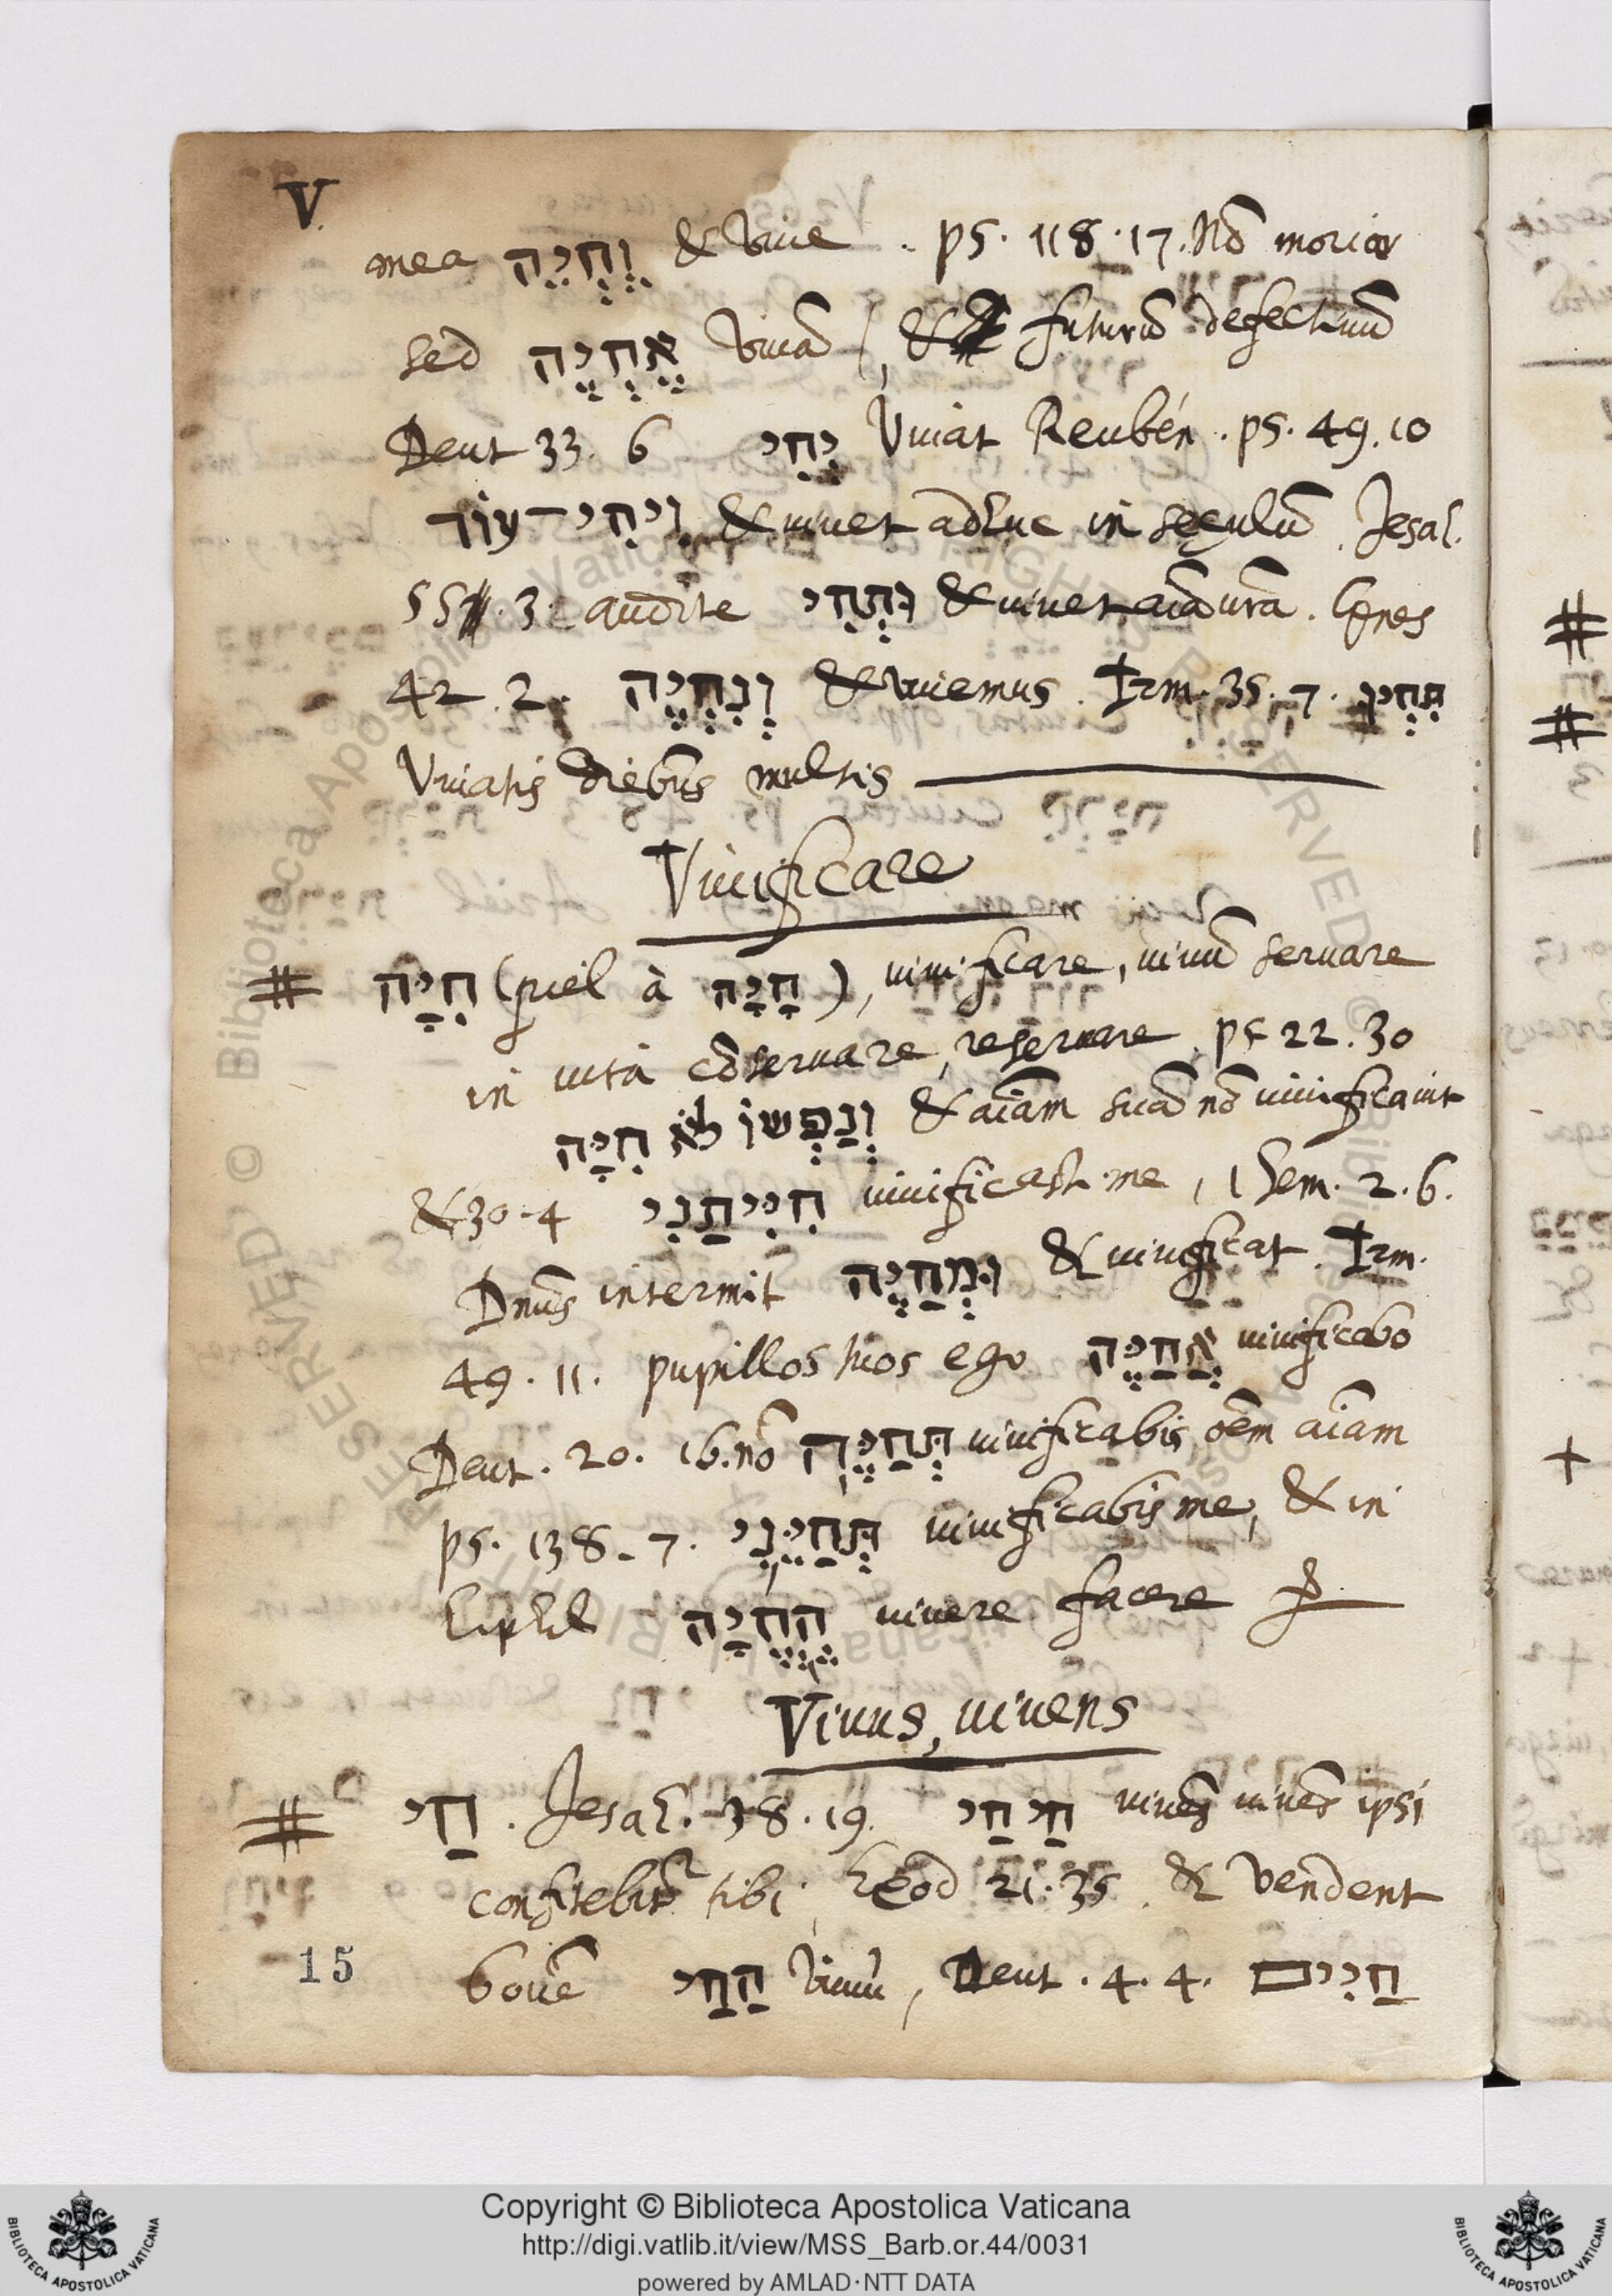 V.
mea וֶחְיֵה & viue . ps. 118.17. Nō morior
sed אֶחְיֶה viuā (, & futurū defectiuū
Deut 33. 6 יְחִי Viuat Reubén . ps. 49.10
וִיחִי־עוֹד & uiuet adhuc in seculū . Jesah.
55. 3. audite וּתְחִי & uiuet aīa urā . Genes
42. 2. וְנִחְיֶה & viuemus . Irm. 35. 7. תִּחְיוּ
Viuatis diebus multis
Viuificare
# חִיָּה (piel à חָיָה), uiuificare, uiuū seruare
in uitâ cōseruare, reseruare. ps 22. 30
וְנַפְשׁוֹ לֹא חִיָּה & aīam suā nō uiuificauit
& 30. 4 חִיִּיתַנִי uiuificasti me, 1 Sem. 2. 6.
Dnūs intermit וּמְחַיֶּה & uiuificat. Irm.
49. 11. pupillos tuos ego אֲחַיֶּה uiuificabo
Deut. 20. 16. nō תְּחַיֶּה uiuificabis oēm aīam
ps. 138. 7. תְּחַיֵּנִי uiuificabis me, & in
hiphil הֶחֱיָה uiuere facere
Viuus, uiuens
# חַי . Jesah. 38. 19. חַי חַי uiuēs uiuēs ipsi
confitebitr tibi, Exod 21. 35. & vendent
bouē הַחַי viuū, Deut. 4. 4. חַיִּים
15
#
#
+
© Biblioteca Apostolica Vaticana
Copyright © Biblioteca Apostolica Vaticana
http://digi.vatlib.it/view/MSS_Barb.or.44/0031
powered by AMLAD·NTT DATA
BIBLIOTECA APOSTOLICA VATICANA
BIBLIOTECA APOSTOLICA VATICANA